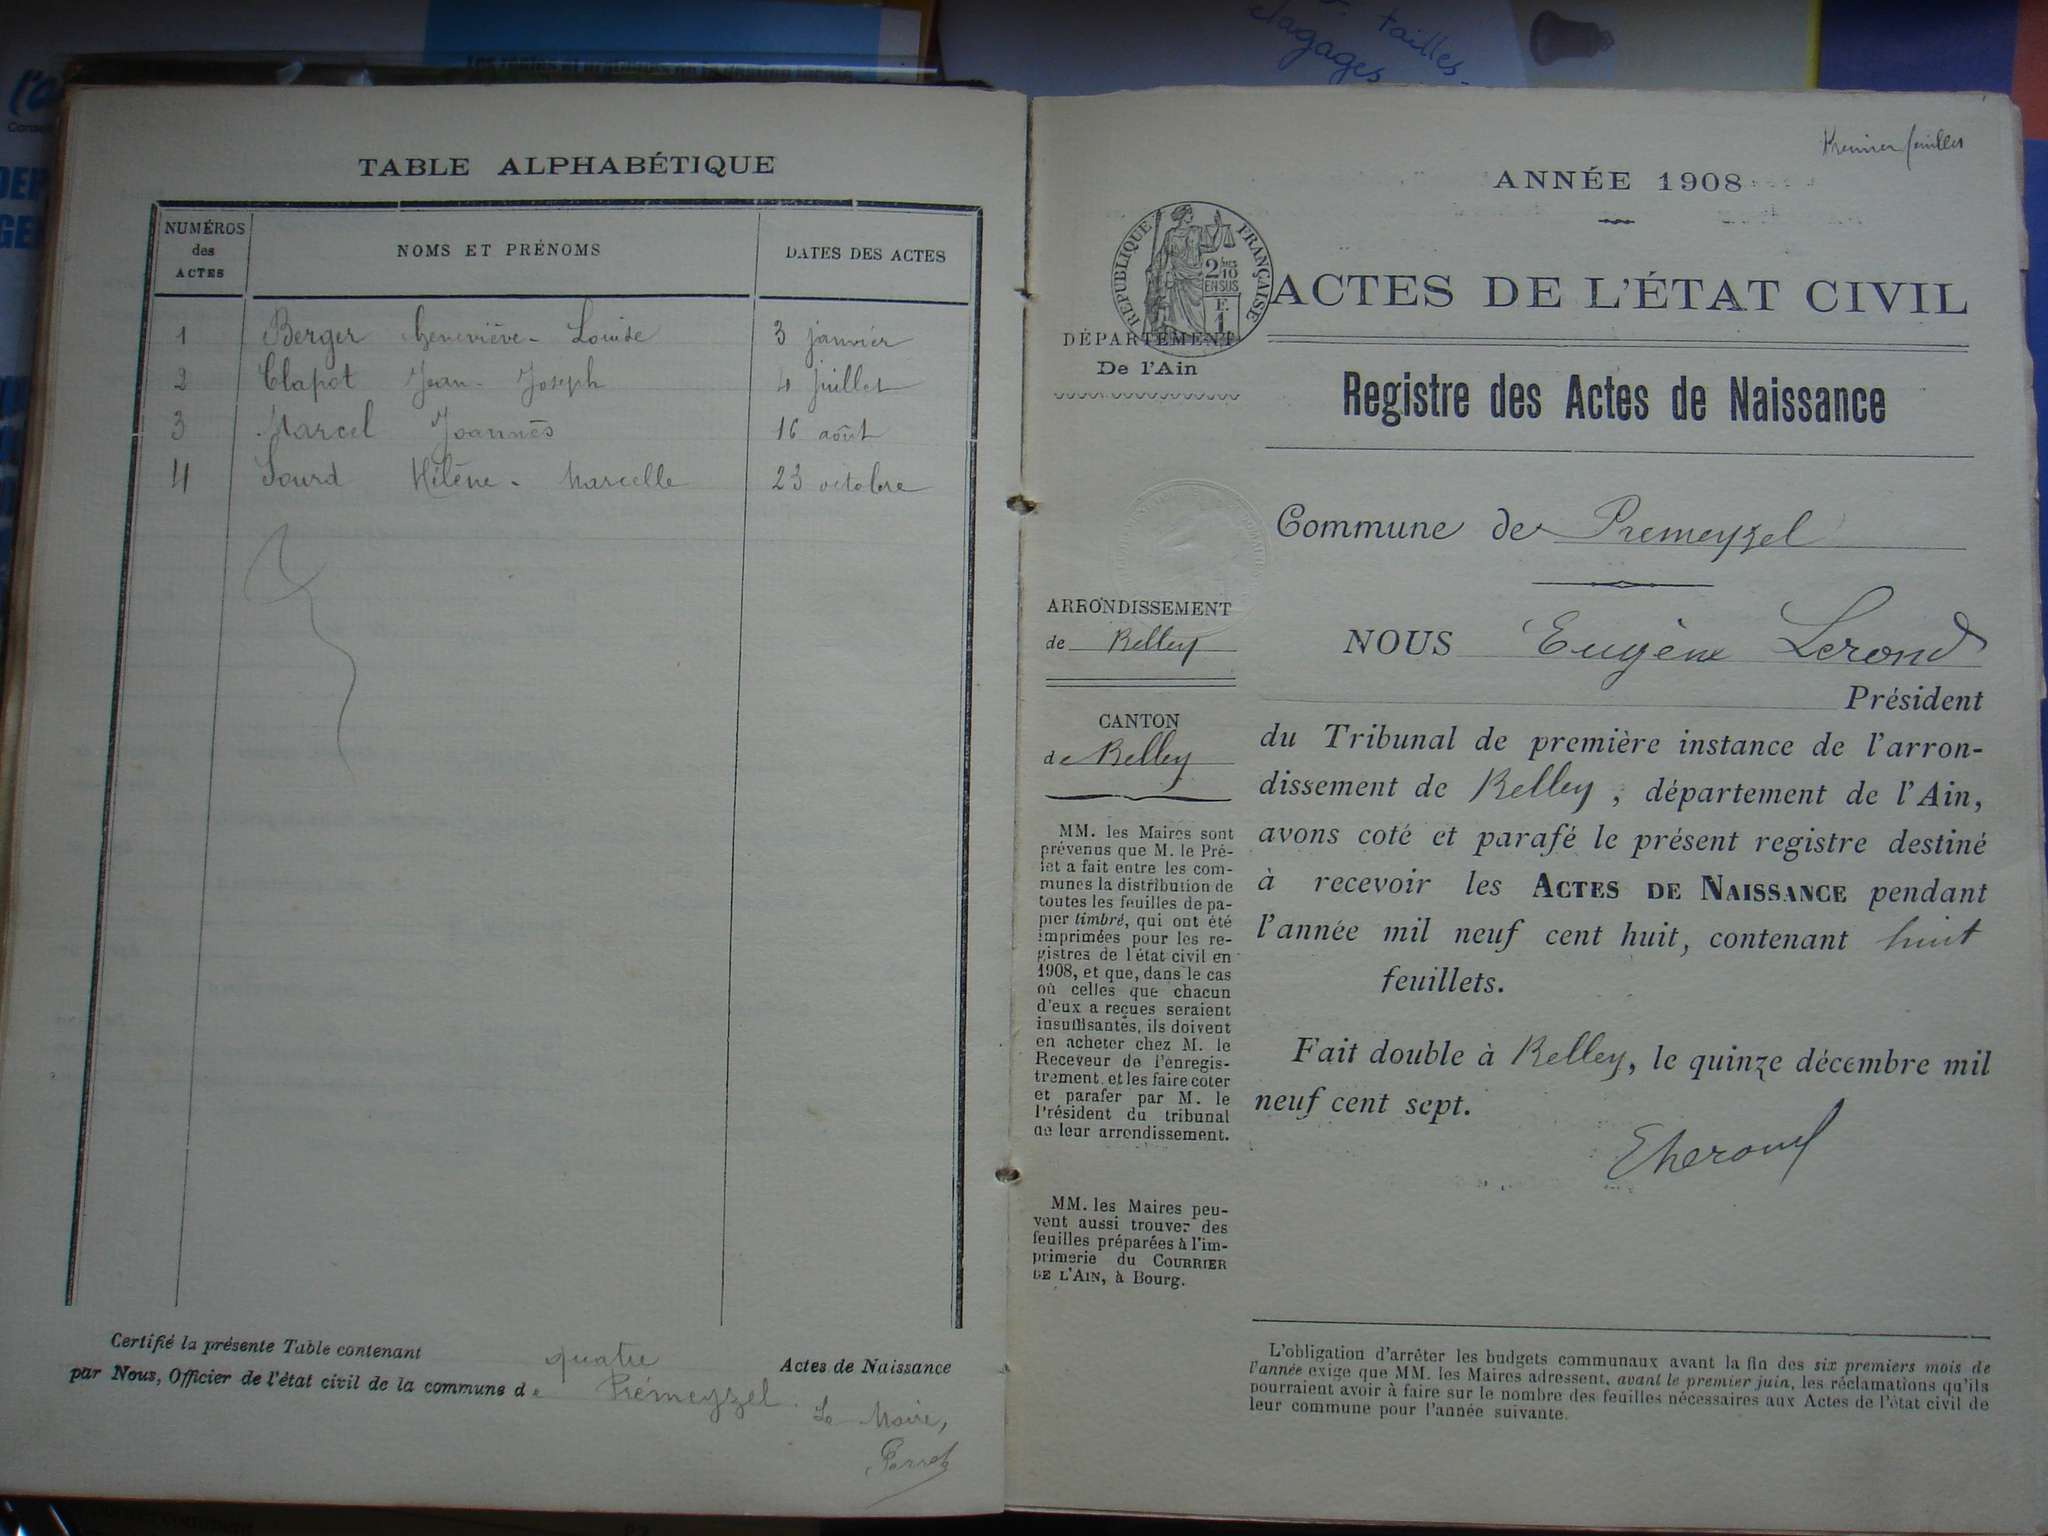 tailles
élagages
TABLE ALPHABÉTIQUE
NUMÉROS des ACTES
NOMS ET PRÉNOMS
DATES DES ACTES
1 Berger Geneviève-Louise 3 janvier
2 Clapot Jean-Joseph 4 juillet
3 Marcel Joannès 16 août
4 Sourd Hélène-Marcelle 23 octobre
Certifié la présente Table contenant quatre Actes de Naissance
par Nous, Officier de l'état civil de la commune de Prémeyzel.
Le Maire,
Perret
Premier feuillet
ANNÉE 1908
RÉPUBLIQUE FRANÇAISE
2/10 EN SUS
F. 1
ACTES DE L'ÉTAT CIVIL
DÉPARTEMENT
De l'Ain
Registre des Actes de Naissance
Commune de Premeyzel
ARRONDISSEMENT
de Belley
CANTON
de Belley
MM. les Maires sont
prévenus que M. le Pré-
fet a fait entre les com-
munes la distribution de
toutes les feuilles de pa-
pier timbré, qui ont été
imprimées pour les re-
gistres de l'état civil en
1908, et que, dans le cas
où celles que chacun
d'eux a reçues seraient
insuffisantes, ils doivent
en acheter chez M. le
Receveur de l'enregis-
trement, et les faire coter
et parafer par M. le
Président du tribunal
de leur arrondissement.
MM. les Maires peu-
vent aussi trouver des
feuilles préparées à l'im-
primerie du COURRIER
DE L'AIN, à Bourg.
NOUS Eugène Lerond
Président
du Tribunal de première instance de l'arron-
dissement de Belley, département de l'Ain,
avons coté et parafé le présent registre destiné
à recevoir les ACTES DE NAISSANCE pendant
l'année mil neuf cent huit, contenant huit
feuillets.
Fait double à Belley, le quinze décembre mil
neuf cent sept.
L'obligation d'arrêter les budgets communaux avant la fin des six premiers mois de
l'année exige que MM. les Maires adressent, avant le premier juin, les réclamations qu'ils
pourraient avoir à faire sur le nombre des feuilles nécessaires aux Actes de l'état civil de
leur commune pour l'année suivante.